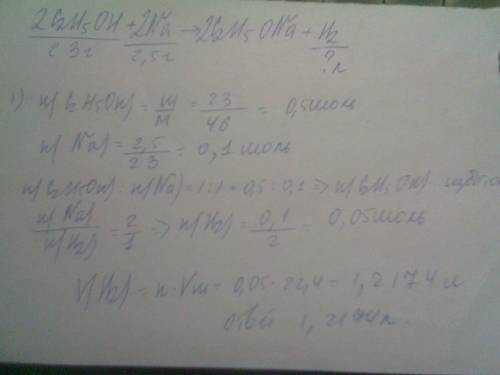 2C2H5OH + 2Na → 2C2H5ONa + H2
23г 2,5г ? л
1) n(C2H5OH) = m/M = 23/46 = 0,5моль
n(Na) = 2,5/23 = 0,1 моль
n(C2H5OH) : n(Na) = 1:1 = 0,5 : 0,1 => n(C2H5OH)
n(Na)/n(H2) = 2/1 => n(H2) = 0,1/2 = 0,05моль
V(H2) = n·Vm = 0,05·22,4 = 1,2174 л
ответ 1,2174л